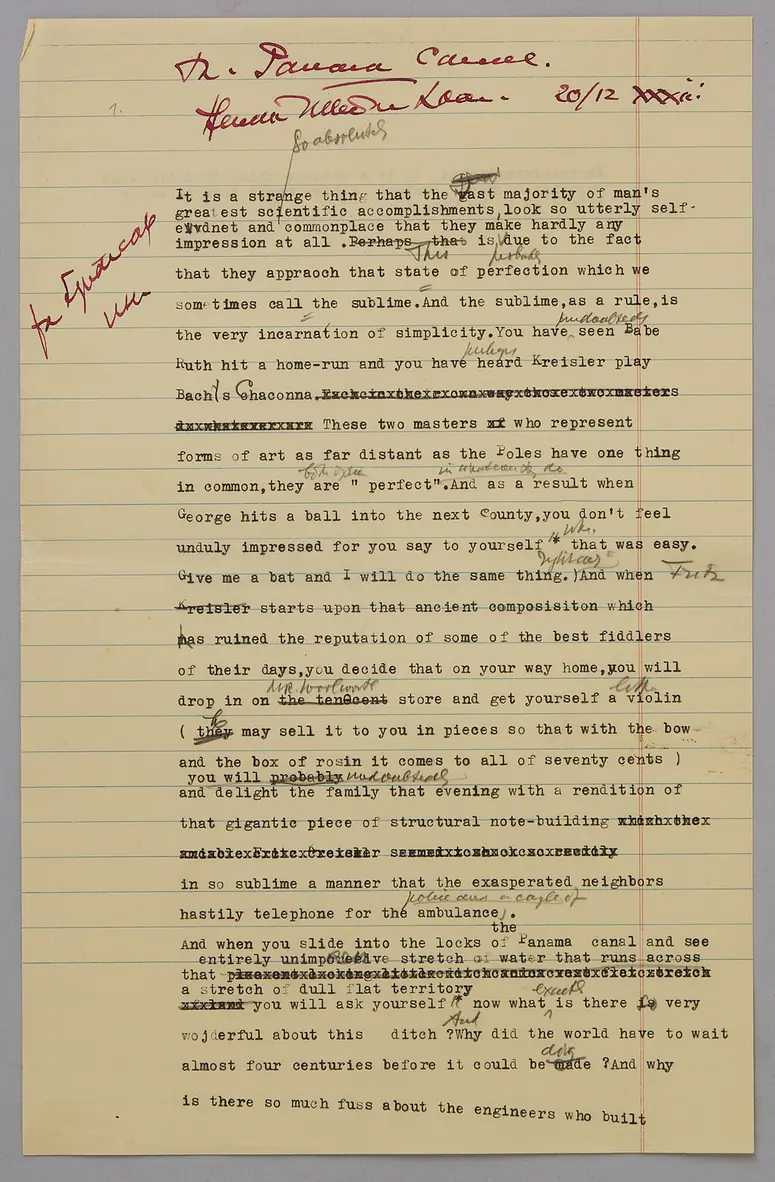 The Panama Canal.
Hendrik Willem Van Loon. 20/12
1.
So absolutely
It is a strange thing that the vast majority of man's
greatest scientific accomplishments,look so utterly self-
evydnet and commonplace that they make hardly any
impression at all .Perhaps that is due to the fact
This probably
that they appraoch that state of perfection which we
sometimes call the sublime.And the sublime,as a rule,is
undoubtedly
the very incarnation of simplicity.You have seen Babe
perhaps
Ruth hit a home-run and you have heard Kreisler play
Bach's Chaconna.
These two masters who represent
forms of art as far distant as the Poles have one thing
in common,they are " perfect".And as a result when
George hits a ball into the next County,you don't feel
unduly impressed for you say to yourself " that was easy.
Give me a bat and I will do the same thing.)And when Fritz
Kreisler starts upon that ancient composisiton which
has ruined the reputation of some of the best fiddlers
of their days,you decide that on your way home,you will
Mr. Woolworth
drop in on the ten cent store and get yourself a violin
he
( they may sell it to you in pieces so that with the bow
and the box of rosin it comes to all of seventy cents )
you will probably undoubtedly
and delight the family that evening with a rendition of
that gigantic piece of structural note-building
in so sublime a manner that the exasperated neighbors
police and a couple of
hastily telephone for the ambulance.
the
And when you slide into the locks of Panama canal and see
entirely unimpressive stretch of water that runs across
that
a stretch of dull flat territory
exactly
you will ask yourself " now what is there is very
And
wojderful about this ditch ?Why did the world have to wait
dug
almost four centuries before it could be made ?And why
is there so much fuss about the engineers who built